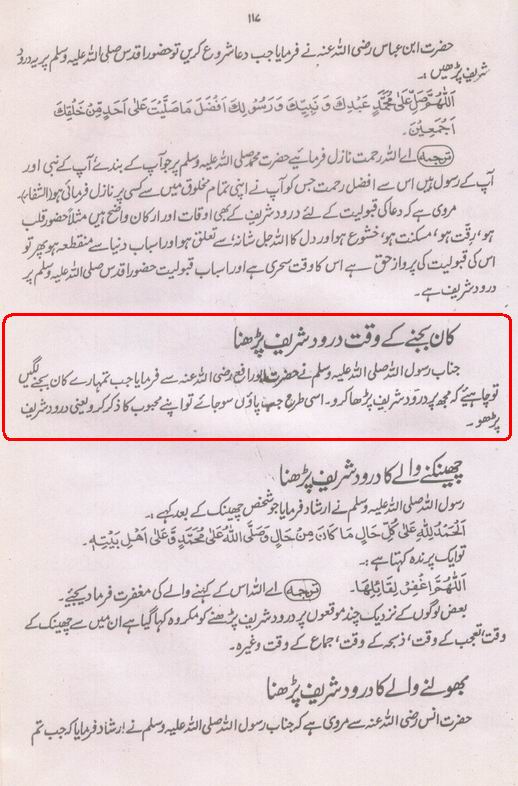 ۱۱۷
حضرت ابن عباس رضی اللہ عنہ نے فرمایا جب دعا شروع کریں تو حضور اقدس صلی اللہ علیہ وسلم پر یہ درود
شریف پڑھیں :۔
اَللّٰهُمَّ صَلِّ عَلٰى مُحَمَّدٍ عَبْدِكَ وَ نَبِيِّكَ وَ رَسُوْلِكَ اَفْضَلَ مَا صَلَّيْتَ عَلٰى اَحَدٍ مِّنْ خَلْقِكَ
اَجْمَعِيْنَ۔
ترجمہ اے اللہ رحمت نازل فرمائیے حضرت محمد صلی اللہ علیہ وسلم پر جو آپ کے بندے آپ کے نبی اور
آپ کے رسول ہیں اس سے افضل رحمت جس کو آپ نے اپنی تمام مخلوق میں سے کسی پر نازل فرمائی ہو (الشفاء)۔
مروی ہے کہ دعا کی قبولیت کے لئے درود شریف کے بھی اوقات اور ارکان واضح ہیں مثلاً حضور قلب
ہو، رقّت ہو، مسکنت ہو، خشوع ہو اور دل کا اللہ جل شانہٗ سے تعلق ہو اور اسباب دنیا سے منقطعہ ہو پھر تو
اس کی قبولیت کی پرواز حق ہے اس کا وقت سحری ہے اور اسباب قبولیت حضور اقدس صلی اللہ علیہ وسلم پر
درود شریف ہے۔
کان بجنے کے وقت درود شریف پڑھنا
جناب رسول اللہ صلی اللہ علیہ وسلم نے حضرت ابو رافع رضی اللہ عنہ سے فرمایا جب تمہارے کان بجنے لگیں
تو چاہیئے کہ مجھ پر درود شریف پڑھا کرو۔ اسی طرح جب پاؤں سو جائے تو اپنے محبوب کا ذکر کرو یعنی درود شریف
پڑھو۔
چھینکنے والے کا درود شریف پڑھنا
رسول اللہ صلی اللہ علیہ وسلم نے ارشاد فرمایا جو شخص چھینک کے بعد کہے :۔
اَلْحَمْدُ لِلّٰهِ عَلٰى كُلِّ حَالٍ مَا كَانَ مِنْ حَالٍ وَصَلَّى اللّٰهُ عَلٰى مُحَمَّدٍ وَّ عَلٰى اَهْلِ بَيْتِهٖ۔
تو ایک پرندہ کہتا ہے :۔
اَللّٰهُمَّ اغْفِرْ لِقَائِلِهَا۔ ترجمہ اے اللہ اس کے کہنے والے کی مغفرت فرما دیجئے۔
بعض لوگوں کے نزدیک چند موقعوں پر درود شریف پڑھنے کو مکروہ کہا گیا ہے ان میں سے چھینک کے
وقت، تعجب کے وقت، ذبحہ کے وقت، جماع کے وقت وغیرہ۔
بھولنے والے کا درود شریف پڑھنا
حضرت انس رضی اللہ عنہ سے مروی ہے کہ جناب رسول اللہ صلی اللہ علیہ وسلم نے ارشاد فرمایا کہ جب تم